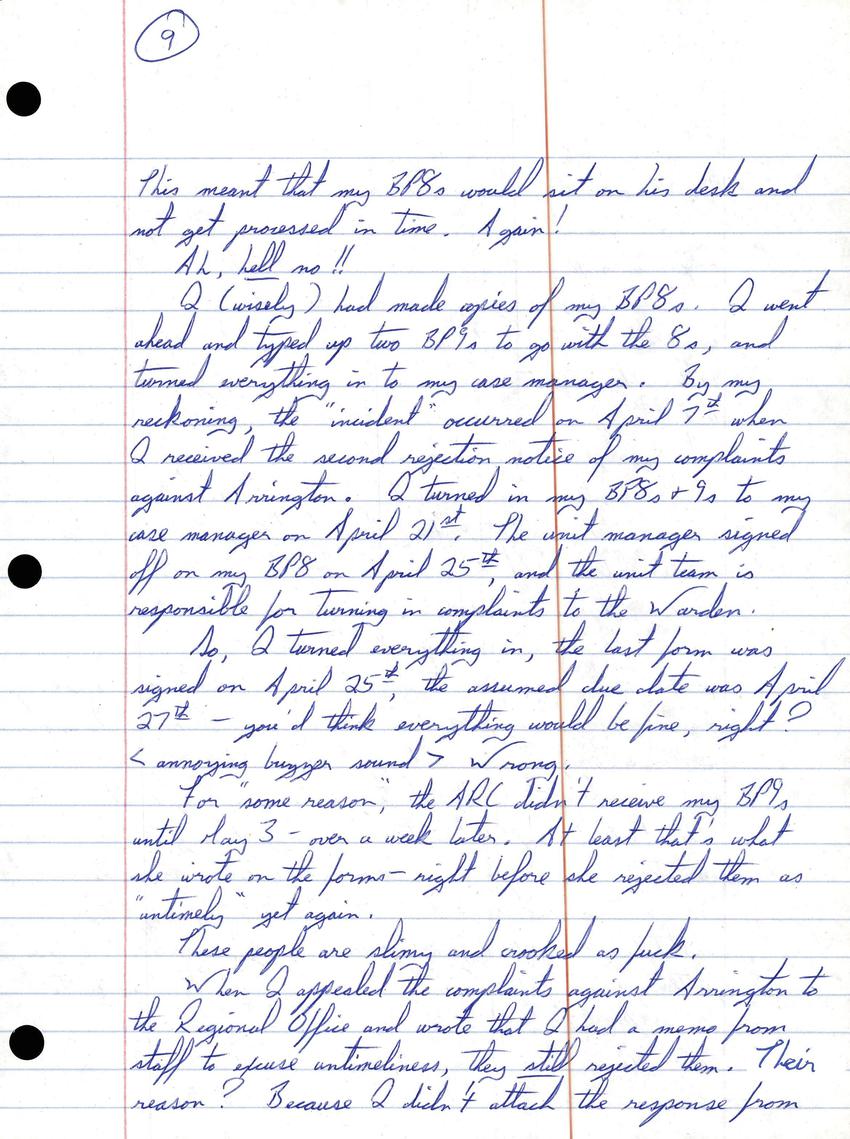 9
This meant that my BP8s would sit on his desk and
not get processed in time. Again!
Ah, hell no!!
I (wisely) had made copies of my BP8s. I went
ahead and typed up two BP9s to go with the 8s, and
turned everything in to my case manager. By my
reckoning, the "incident" occurred on April 7th when
I received the second rejection notice of my complaints
against Arrington. I turned in my BP8s + 9s to my
case manager on April 21st. The unit manager signed
off on my BP8 on April 25th, and the unit team is
responsible for turning in complaints to the Warden.
So, I turned everything in, the last form was
signed on April 25th, the assumed due date was April
27th - you'd think everything would be fine, right?
< annoying buzzer sound > Wrong.
For "some reason", the ARC didn't receive my BP9s
until May 3 - over a week later. At least that's what
she wrote on the forms - right before she rejected them as
"untimely" yet again.
These people are slimy and crooked as fuck.
When I appealed the complaints against Arrington to
the Regional Office and wrote that I had a memo from
staff to excuse untimeliness, they still rejected them. Their
reason? Because I didn't attach the response from